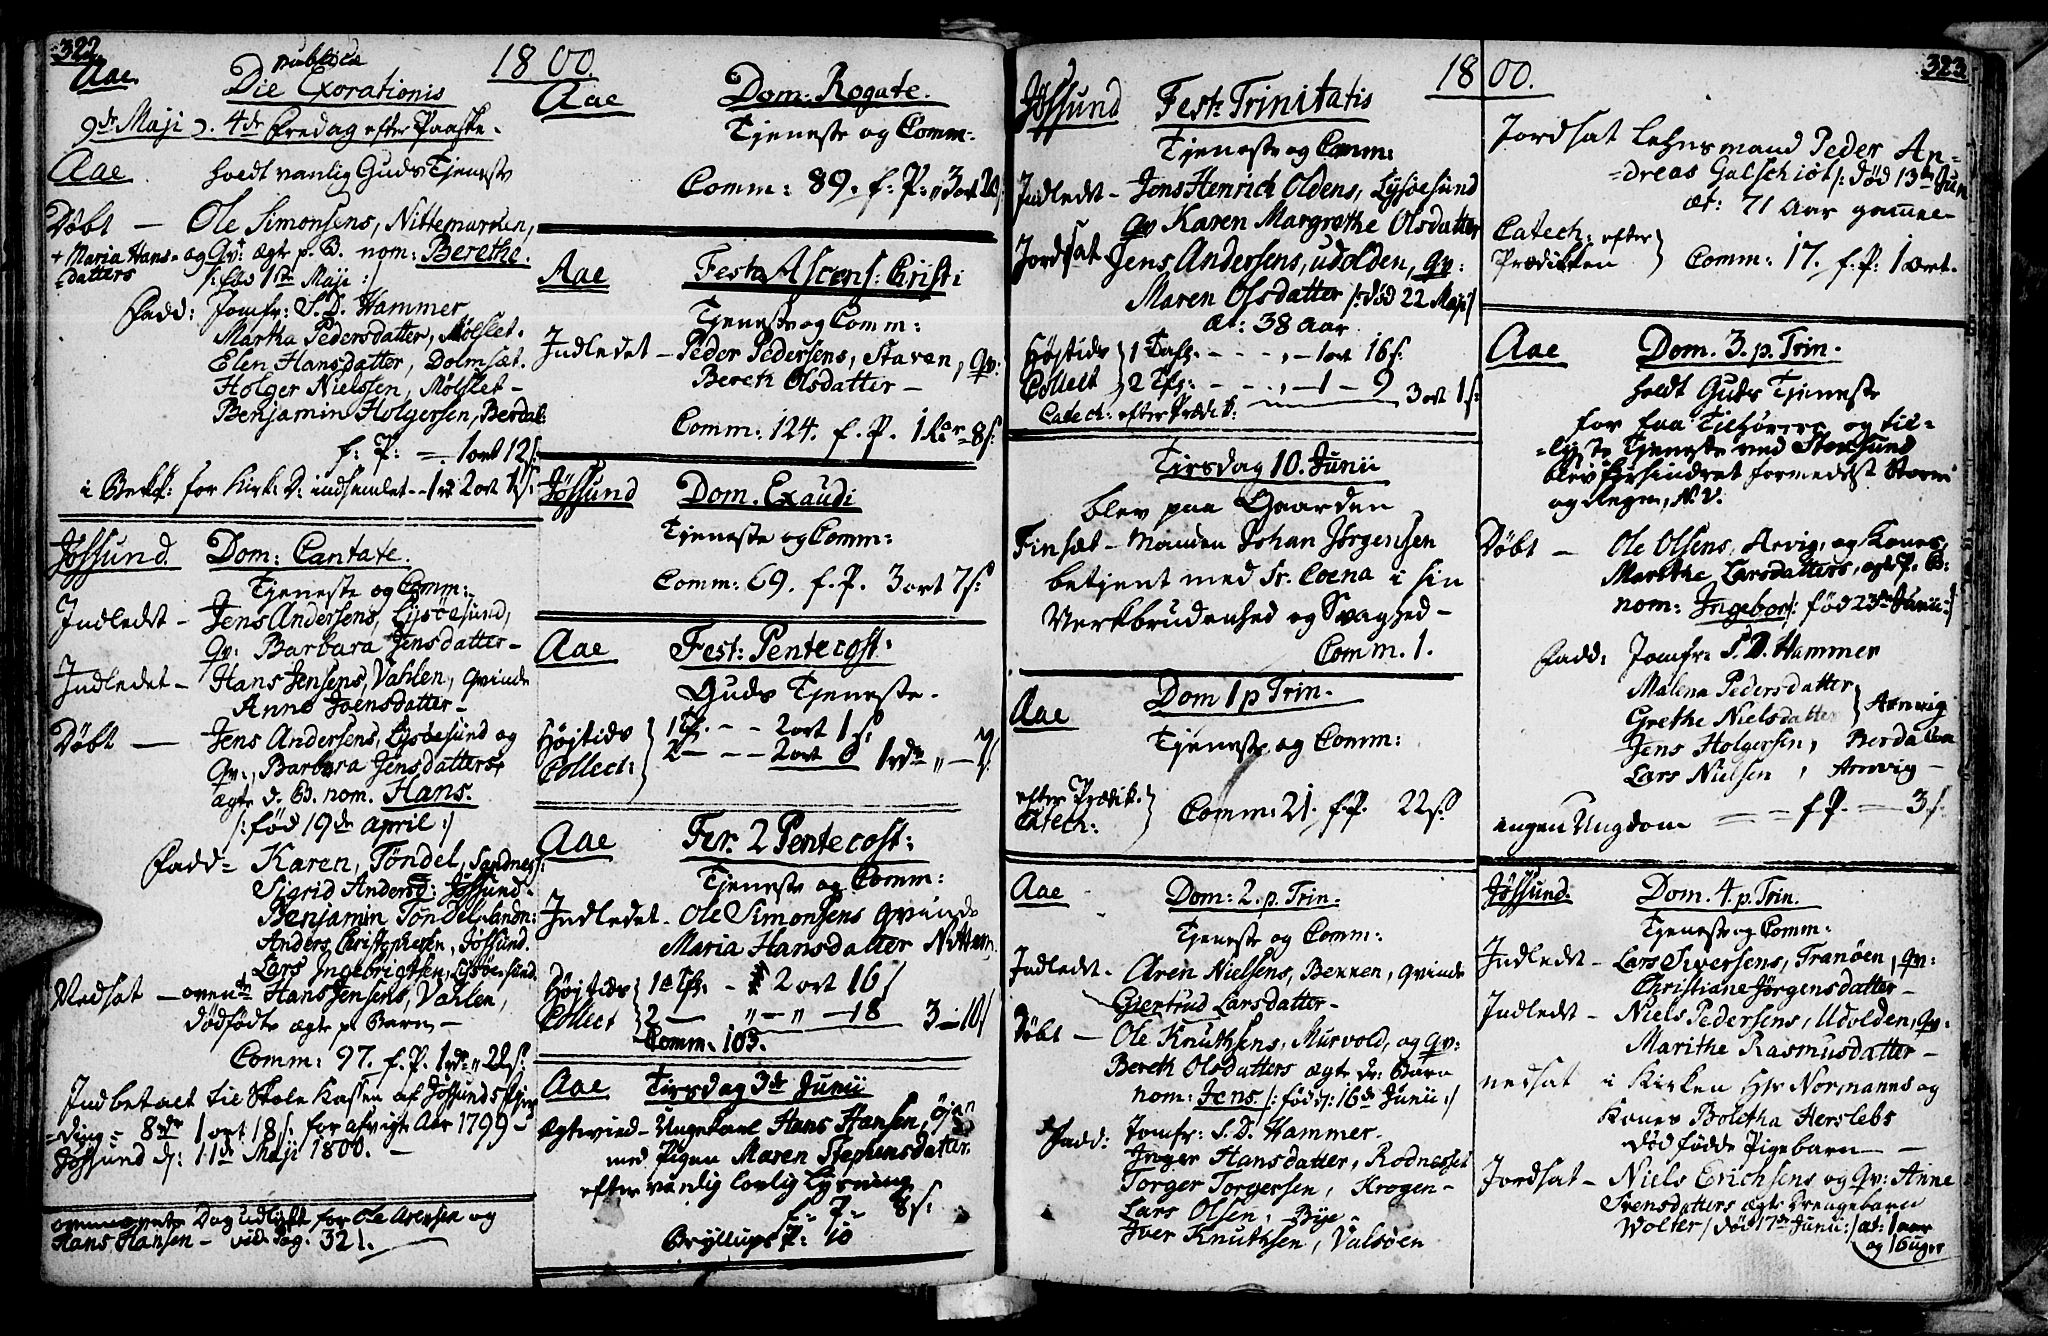 322.
1800.
Aae. Die publica Exorationis
9de Maji ɔ. 4de Fredag efter Paaske.
Aae holdt vanlig Guds Tjeneste
Døbt — Ole Simonsens, Nittemarken,
+ Maria Hans- og Qv: ægte p. B. nom: Berethe.
datters /: fød 1ste Maji :/
Fadd: Jomfr: S. D. Hammer
Martha Pedersdatter, Mølslet.
Elen Hansdatter, Dolmsæt.
Holger Nielssen, Mølslet —
Benjamin Holgersen, Berdal
f: P: = 1 ort 12 s:
i Bekk: for Kirk: D: indsamlet — 1 rd 2 ort s:
Jøssund. Dom: Cantate.
Tjeneste og Comm:
Indledet — Jens Andersens, Lysøesund,
Qv: Barbara Jensdatter —
Indledet — Hans Jensens, Vahlen, Qvinde
Anne Joensdatter —
Døbt — Jens Andersens, Lysøesund og
Qv:, Barbara Jensdatters
ægte d. B. nom. Hans.
/: fød 19de april :/
Fadd = Karen, Tøndel, Sandnes:
Sigrid Andersd: Jøssund —
Benjamin Tøndel, Sandn:
Anders Christophersen, Jøssund.
Lars Ingebrigtsen, Lysøesund.
Nedsat — Hans Jensens, Vahlen,
dødfødte ægte p Barn —
Comm: 97. f. P. 1 rd „ 22 s:
Indbetalt til Skole Kassen af Jøssunds Gjer
=ding = 8 rdr 1 ort 18 s: for afvigte Aar 1799 —
Jøssund d: 11de Maji 1800. —
ovennævnte Dag udlight for Ole Asersen og
Hans Hansen — vide Pag. 321.
Aae Dom: Rogate.
Tjeneste og Comm:
Comm: 89. f. P: „ 3 ort 2 s.
Aae Festo Ascens: Cristi
Tjeneste og Comm:
Indledet — Peder Pedersens, Staven, Qv:
Bereth Olsdatter —
Comm: 124. f. P. 1 8 s:
Jøssund Dom. Exaudi
Tjeneste og Comm:
Comm: 69. f. P. 3 ort 7 s:
Aae Fest: Pentecost:
Guds Tjeneste.
Højtids 1 Tfl. — — 2 ort 1 s:
Collect: 2 — — — 2 ort 6 1 rdr „ — 7
Aae Fer. 2 Pentecost:
Tjeneste og Comm:
Indledet. Ole Simonsens Qvinde
Maria Hansdatter Nittem.
Højtids 1e Tfl. — 2 ort 16 s
Collect 2 — „ — „ — 18 3 — 10 s
Comm. 103.
Aae Tirsdag 3de Junii
Ægtevied — Ungekarl Hans Hansen,
med Pigen Maren Stephensdatter
efter vanlig lovlig Lysning
f. P — 8 s:
Bryllups P: 10
323
1800.
Jøssund Fest: Trinitatis
Tjeneste og Comm:
Indledet — Jens Henrich Oldens, Lysøesund
Qv Karen Margrethe Olsdatter
Jordsat Jens Andersens, udolden, Qv:
Maren Olsdatter /: død 22 Maji /
æt: 38 aar
Højtids 1 Tafl. — — „ — 1 ort 16 s:
Collect 2 Tfl: — — „ — 1 — 9 3 ort 1 s:
Catech: efter Prædik:
Tirsdag 10. Junii
blev paa Gaarden
Finsæt — Manden Johan Jørgensen
betjent med Sr. Coena i sin
Verkbrudenhed og Svaghed —
Comm. 1.
Aae Dom 1 p Trin.
Tjeneste og Comm:
efter Prædik.
Catech: Comm: 21. f. P. 22 s:
Aae Dom: 2. p. Trin.
Tjeneste og Comm:
Indledt. Aren Nielsens, Bennen, Qvinde
Gjertrud Larsdatter —
Døbt — Ole Knuthsens, Murvold, og Qv:
Bereth Olsdatters ægte Dr: Barn
nom: Jens /: fød d: 16de Junii :/
Fadd: Jomfr: S. D. Hammer.
Inger Hansdatter, Rødnesset
Torger Torgersen, Krogen —
Lars Olsen, Bye —
Iver Knuthsen, Valsøen
Jordsat Lehnsmand Peder An-
=dreas Galschiøt /: død 13de Jun
æt: 71 Aar gammel —
Catech: efter
Prædikken Comm: 17. f. P: 1 ort.
Aae Dom. 3. p. Trin.
holdt Guds Tjeneste
for faa Tilhørere og til-
=lyste Tjeneste ved Storsund
blev forhindret formedelst Storm
og Regn, N. V.
Døbt — Ole Olsens, Arvig, og Kones,
Marithe Larsdatters, ægte P. B:
nom: Ingebor /: fød 23de Junii :/
Fadd: Jomfr: S. D. Hammer
Malena Pedersdatter
Grethe Nielsdatter Arnvig
Jens Holgersen, Berdalen
Lars Nielsen, Arnvig —
ingen Ungdom = = f P. — 3 s.
Jøssund. Dom. 4. p. Trin.
Tjeneste og Comm:
Indledt — Lars Siversens, Tranøen, Qv:
Christiane Jørgensdatter —
Indledt — Niels Pedersens, Udolden, Qv:
Marithe Rasmusdatter —
nedsat i Kirken Hr Normanns og
Kones Boletha Herslebs
død fødde Pigebarn —
Jordsat — Niels Erichsens og Qv: Anne
Svensdatters ægte Drengebarn
Wolter / død 17de Junii :/ æt: 1 aar
og 16 uger